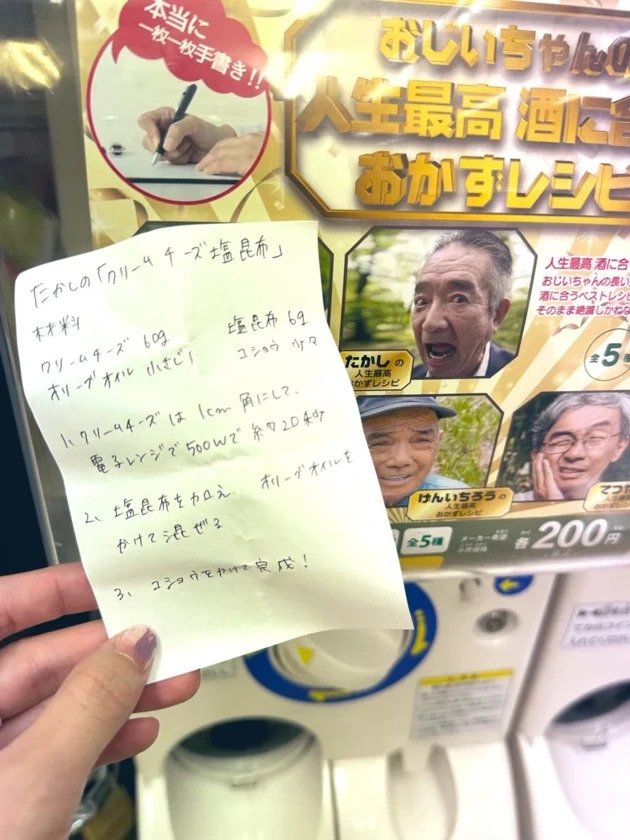 本当に
一枚一枚手書き!!
おじいちゃんの
人生最高 酒に合
おかずレシピ
たかしの「クリームチーズ塩昆布」
材料
クリームチーズ 60g 塩昆布 6g
オリーブオイル 小さじ1 コショウ 少々
1、クリームチーズは 1cm 角にして、
電子レンジで 500Wで 約20秒
2、塩昆布を加え、オリーブオイルを
かけて混ぜる
3、コショウをかけて完成!
人生最高 酒に合
おじいちゃんの長い
酒に合うベストレシピ
そのまま絶滅しかねな
全5種
たかしの
人生最高
おかずレシピ
げんいちろうの
人生最高
おかずレシピ
てつ
人生最高
おかずレシピ
全5種
メーカー希望
小売価格
各200円